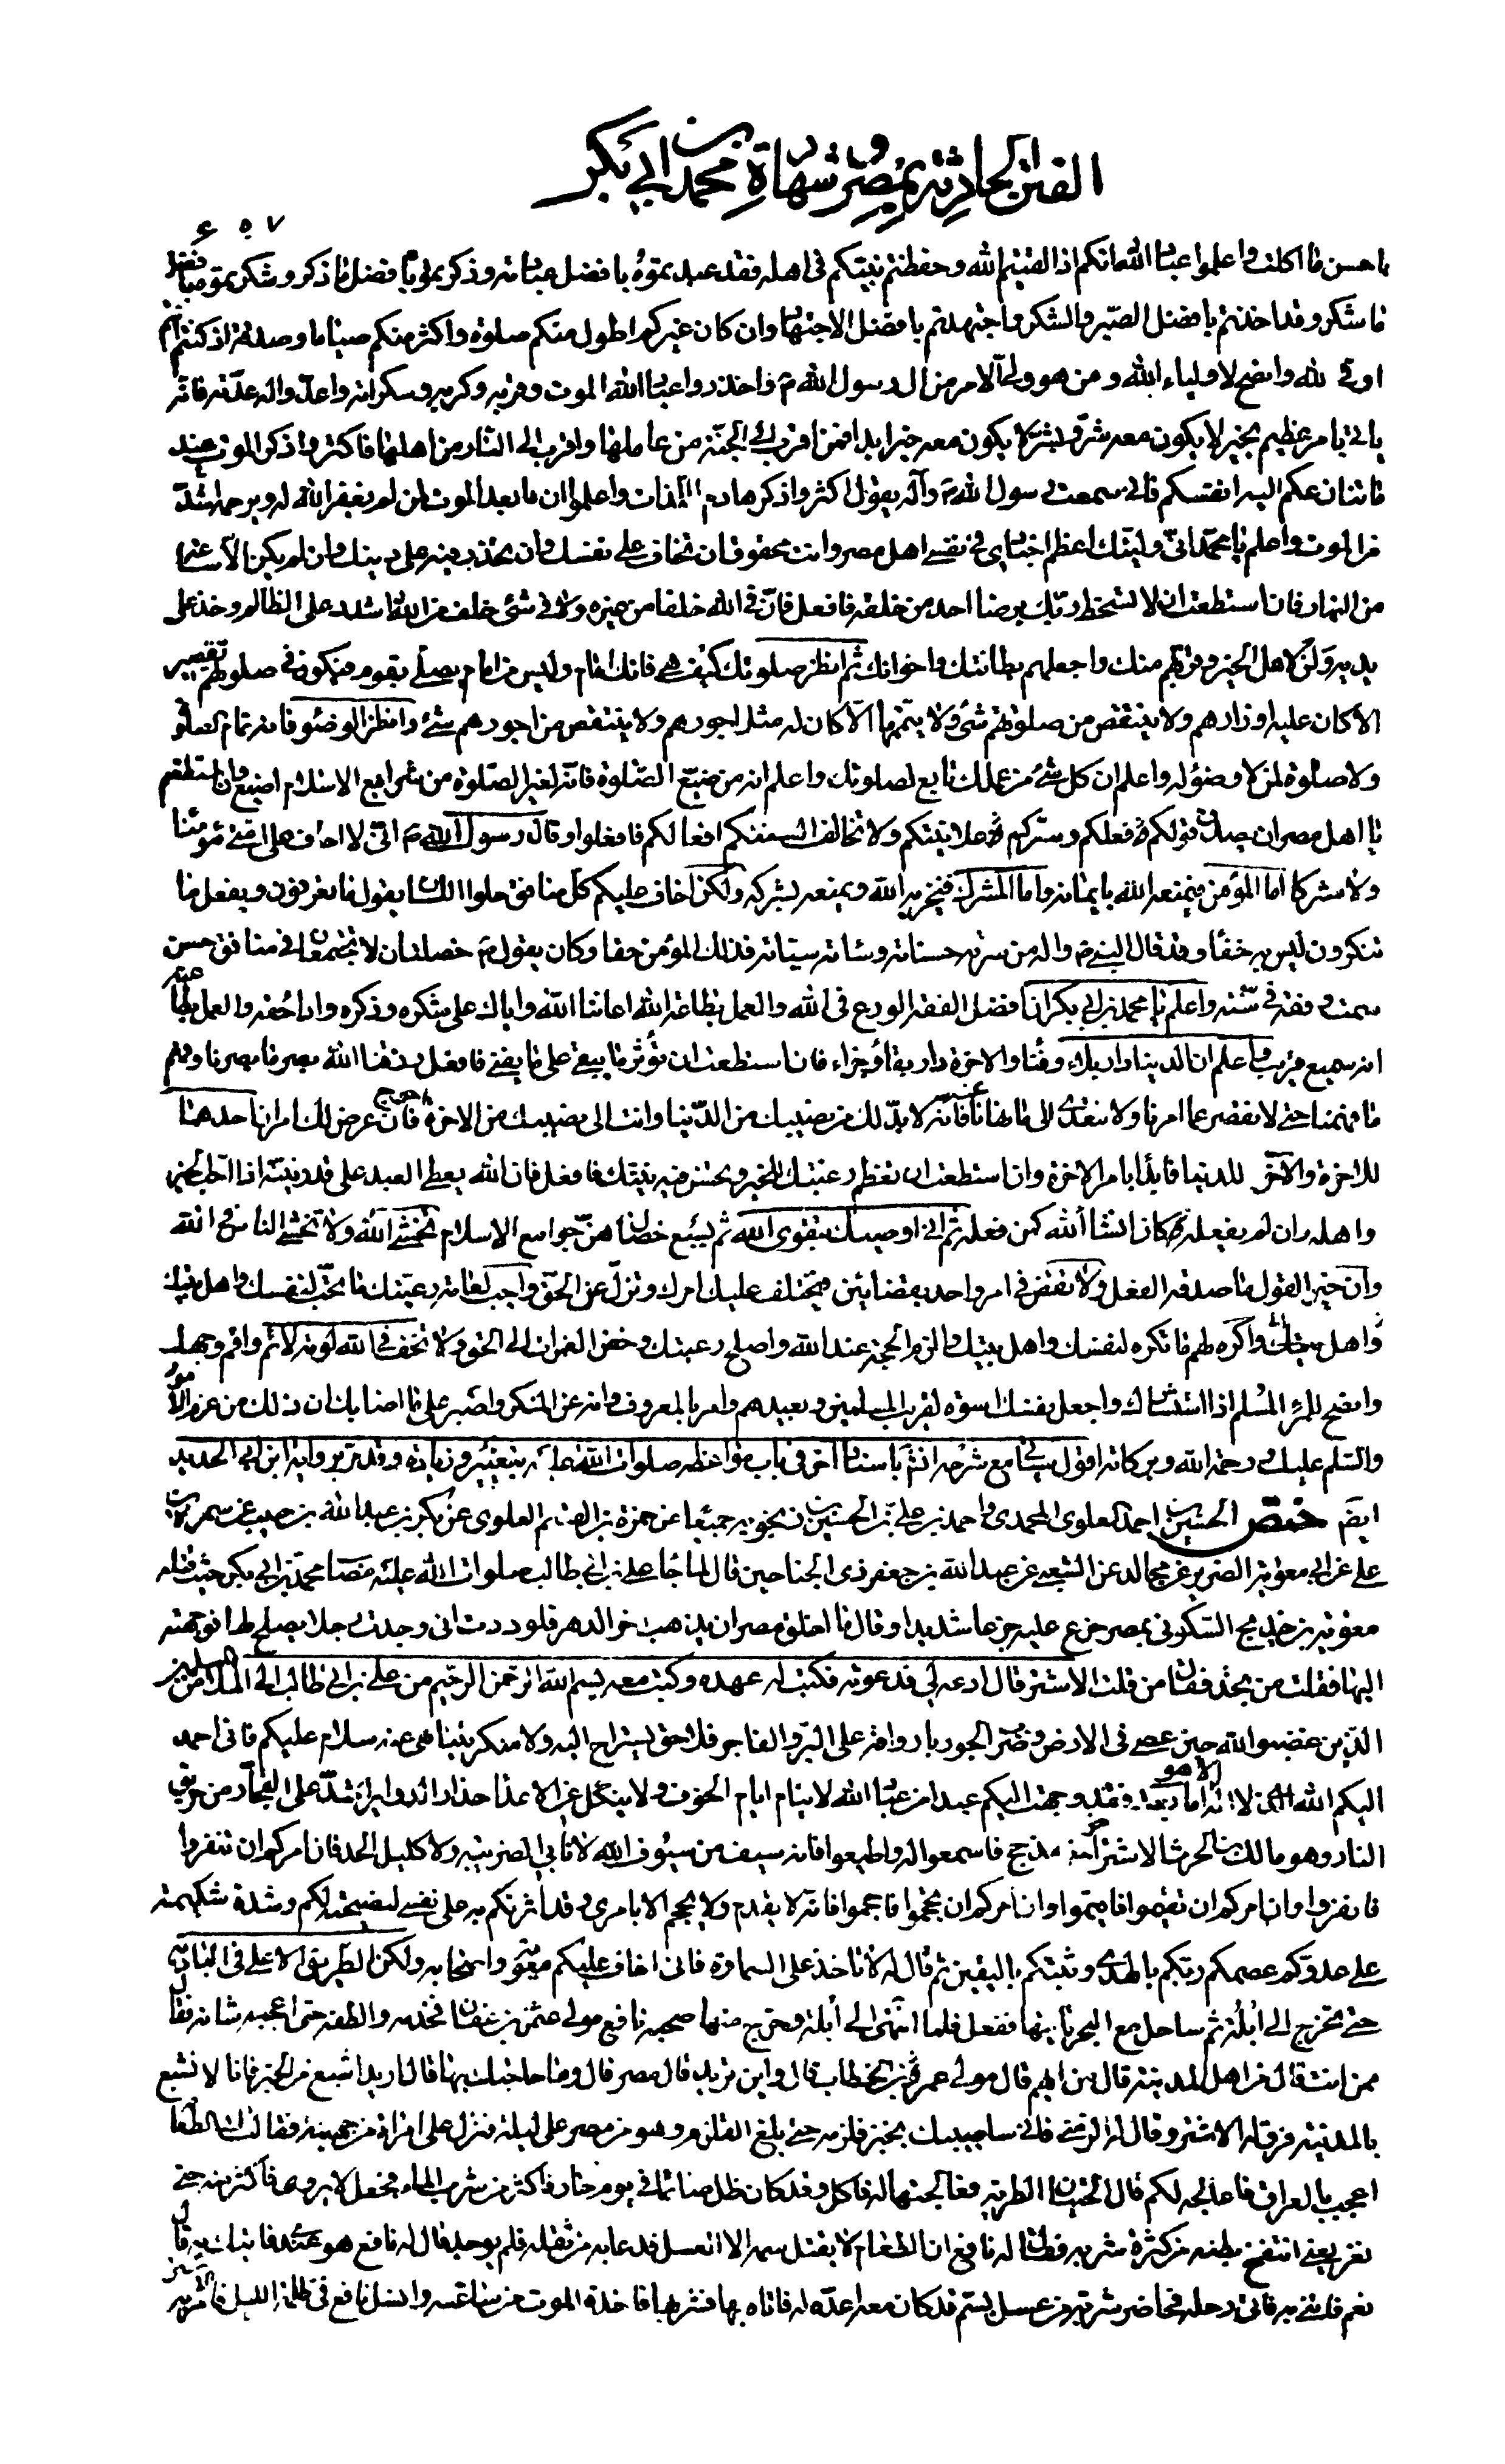 الفتن الحادثة بمصر و شهادة محمد بن ابی بکر
۶۵۷
باحسن ما اكلت واعلموا عباد الله انكم اذا اتقيتم الله وحفظتم نبيكم فى اهله فقد عبدتموه بافضل عبادته وذكرتموه بافضل ما ذكر وشكرتموه بافضل
ما شكر وقد اخذتم بافضل الصبر والشكر واجتهدتم بافضل الاجتهاد وان كان غيركم اطول منكم صلوة واكثر منكم صياما وصدقة اذ كنتم انتم
اوفى لله وانصح لاولياء الله ومن هو ولى الامر من ال رسول الله ص فاحذروا عباد الله الموت وقربه وكربه وسكراته واعدوا له عدته فانه
ياتى بامر عظيم بخير لا يكون معه شر وبشر لا يكون معه خير ابدا فمن اقرب الى الجنة من عاملها واقرب الى النار من اهلها فاكثروا ذكر الموت عند
ما تنازعكم اليه انفسكم فانى سمعت رسول الله ص وآله يقول اكثروا ذكر هادم اللذات واعلموا ان ما بعد الموت لمن لم يغفر الله له ويرحمه اشد
من الموت واعلم يا محمد انى وليتك اعظم اجنادى فى نفسى اهل مصر وانت محقوق ان تخاف على نفسك وان تحذر فيه على دينك وان لم يكن الا ساعة
من النهار فان استطعت ان لا تسخط ربك برضا احد من خلقه فافعل فان فى الله خلفا من غيره ولا فى شئ خلف من الله اشدد على الظالم وخذ على
يديه ولن لاهل الخير وقربهم منك واجعلهم بطانتك واخوانك ثم انظر صلوتك كيف هى فانك امام وليس من امام يصلى بقوم فيكون فى صلوتهم تقصير
الا كان عليه اوزارهم ولا ينتقص من صلوتهم شئ ولا يتمها الا كان له مثل اجورهم ولا ينتقص من اجورهم شئ وانظر الوضوء فانه تمام الصلوة
ولا صلوة لمن لا وضوء له واعلم ان كل شئ من عملك تابع لصلوتك واعلم انه من ضيع الصلوة فانه لغير الصلوة من شرايع الاسلام اضيع وان استطعتم
يا اهل مصر ان يصدق قولكم فعلكم وسركم علانيتكم ولا تخالف السنتكم افعالكم فافعلوا وقال رسول الله ص انى لا اخاف على امتى مؤمنا
ولا مشركا اما المؤمن فيمنعه الله بايمانه واما المشرك فيخزيه الله ويمنعه بشركه ولكن اخاف عليكم كل منافق حلو اللسان يقول ما تعرفون ويفعل ما
تنكرون ليس به خفاء وقد قال النبى ص واله من سرته حسناته وسائته سيئاته فذلك المؤمن حقا وكان يقول ص خصلتان لا تجتمعان فى منافق حسن
سمت وفقه فى سنة واعلم يا محمد بن ابى بكر ان افضل الفقه الورع فى دين الله والعمل بطاعة الله اعاننا الله واياك على شكره وذكره واداء حقه والعمل بطاعته
انه سميع قريب واعلم ان الدنيا دار بلاء وفناء والاخرة دار بقاء وجزاء فان استطعت ان تؤثر ما يبقى على ما يفنى فافعل رزقنا الله بصر ما بصرنا وفهم
ما فهمنا حتى لا نقصر عما امرنا ولا نتعدى الى ما نهانا عنه فانه لابد لك من نصيبك من الدنيا وانت الى نصيبك من الاخرة احوج فان عرض لك امران احدهما
للاخرة والآخر للدنيا فابدأ بامر الاخرة وان استطعت ان تعظم رغبتك للخير وتحسن فيه نيتك فافعل فان الله يعطى العبد على قدر نيته اذا احب الخير
واهله وان لم يفعله كان ان شاء الله كمن فعله ثم انى اوصيك بتقوى الله ثم بسبع خصال هن جوامع الاسلام تخشى الله ولا تخشى الناس فى الله
وان خير القول ما صدقه الفعل ولا تقض فى امر واحد بقضائين فيختلف عليك امرك وتزل عن الحق واحب لعامة رعيتك ما تحب لنفسك واهل بيتك
واكره لهم ما تكره لنفسك واهل بيتك والزم الحجة عند الله واصلح رعيتك وخض الغمرات الى الحق ولا تخف فى الله لومة لائم واقم وجهك
وانصح للمرء المسلم اذا استشارك واجعل نفسك اسوة لقريب المسلمين وبعيدهم وامر بالمعروف وانه عن المنكر واصبر على ما اصابك ان ذلك من عزم الامور
والسلم عليك ورحمة الله وبركاته اقول سياتى مع شرحه باسناد آخر فى باب مواعظه صلوات الله عليه بتغيير وزيادة وقد مر برواية ابن ابى الحديد
ايضا ختص الحسين بن احمد العلوى المحمدى واحمد بن على بن الحسين بن زنجويه جميعا عن حمزة بن القسم العلوى عن بكر بن عبد الله بن حبيب عن سمرة بن
على عن ابى معوية الضرير عن مجالد عن الشعبى عن عبد الله بن جعفر ذى الجناحين قال لما جاء على بن ابى طالب صلوات الله عليه مصاب محمد بن ابى بكر حيث قتله
معوية بن خديج السكونى بمصر جزع عليه جزعا شديدا وقال ما اخلق مصر ان يذهب اخر الدهر فلوددت انى وجدت رجلا يصلح لها فوجهته
اليها فقلت من تجد فقال من قلت الاشتر قال ادعه لى فدعوته فكتب له عهده وكتب معه بسم الله الرحمن الرحيم من على بن ابى طالب الى الملا من المسلمين
الذين غضبوا لله حين عصى فى الارض وضرب الجور بارواقه على البر والفاجر فلا حق يستراح اليه ولا منكر يتناهى عنه سلام عليكم فانى احمد
اليكم الله الذى لا اله الا هو اما بعد فقد وجهت اليكم عبدا من عباد الله لا ينام ايام الخوف ولا ينكل عن الاعداء حذار الدوائر اشد على الفجار من حريق
النار وهو مالك بن الحرث الاشتر اخو مذحج فاسمعوا له واطيعوا فانه سيف من سيوف الله لا نابى الضريبة ولا كليل الحد فان امركم ان تنفروا
فانفروا وان امركم ان تقيموا فاقيموا وان امركم ان تحجموا فاحجموا فانه لا يقدم ولا يحجم الا بامرى وقد اثرتكم به على نفسى لنصيحته لكم وشدة شكيمته
على عدوكم عصمكم ربكم بالهدى وثبتكم باليقين ثم قال له لا تاخذ على السماوة فانى اخاف عليكم معوية واصحابه ولكن الطريق الاعلى فى البادية
حتى تخرج الى ايلة ثم ساحل مع البحر تاتيها ففعل فلما انتهى الى ايلة وخرج منها صحبه نافع مولى عثمن بن عفان فخدمه والطفه حتى اعجبه شانه فقال
ممن انت قال من اهل المدينة قال من ايهم قال مولى عمر بن الخطاب قال واين تريد قال مصر قال وما حاجتك بها قال اريد اشبع من الخبز فانا لا نشبع
بالمدينة فرق له الاشتر وقال له الزمنى فانى ساجيبك بخبز فلزمه حتى بلغ القلزم وهو من مصر على ليلة فنزل على امراة من جهينة فقالت اى الطعام
اعجب بالعراق فاعالجه لكم قال الحيتان الطرية فعالجتها له فاكل وقد كان ظل صائما فى يوم حار فاكثر من شرب الماء فجعل لا يروى فاكثر منه حتى
نغر يعنى انتفخ بطنه من كثرة شربه فقال له نافع ان الطعام لا يقتل سمه الا العسل فدعا به من ثقله فلم يوجد قال له نافع هو عندى فاتيك به قال
نعم فاتنى به فاتى رحله فحاضر شربة من عسل بسم قد كان معه اعده له فاتاه بها فشربها فاخذه الموت من ساعته وانسل نافع فى ظلمة الليل فامر به الاشتر